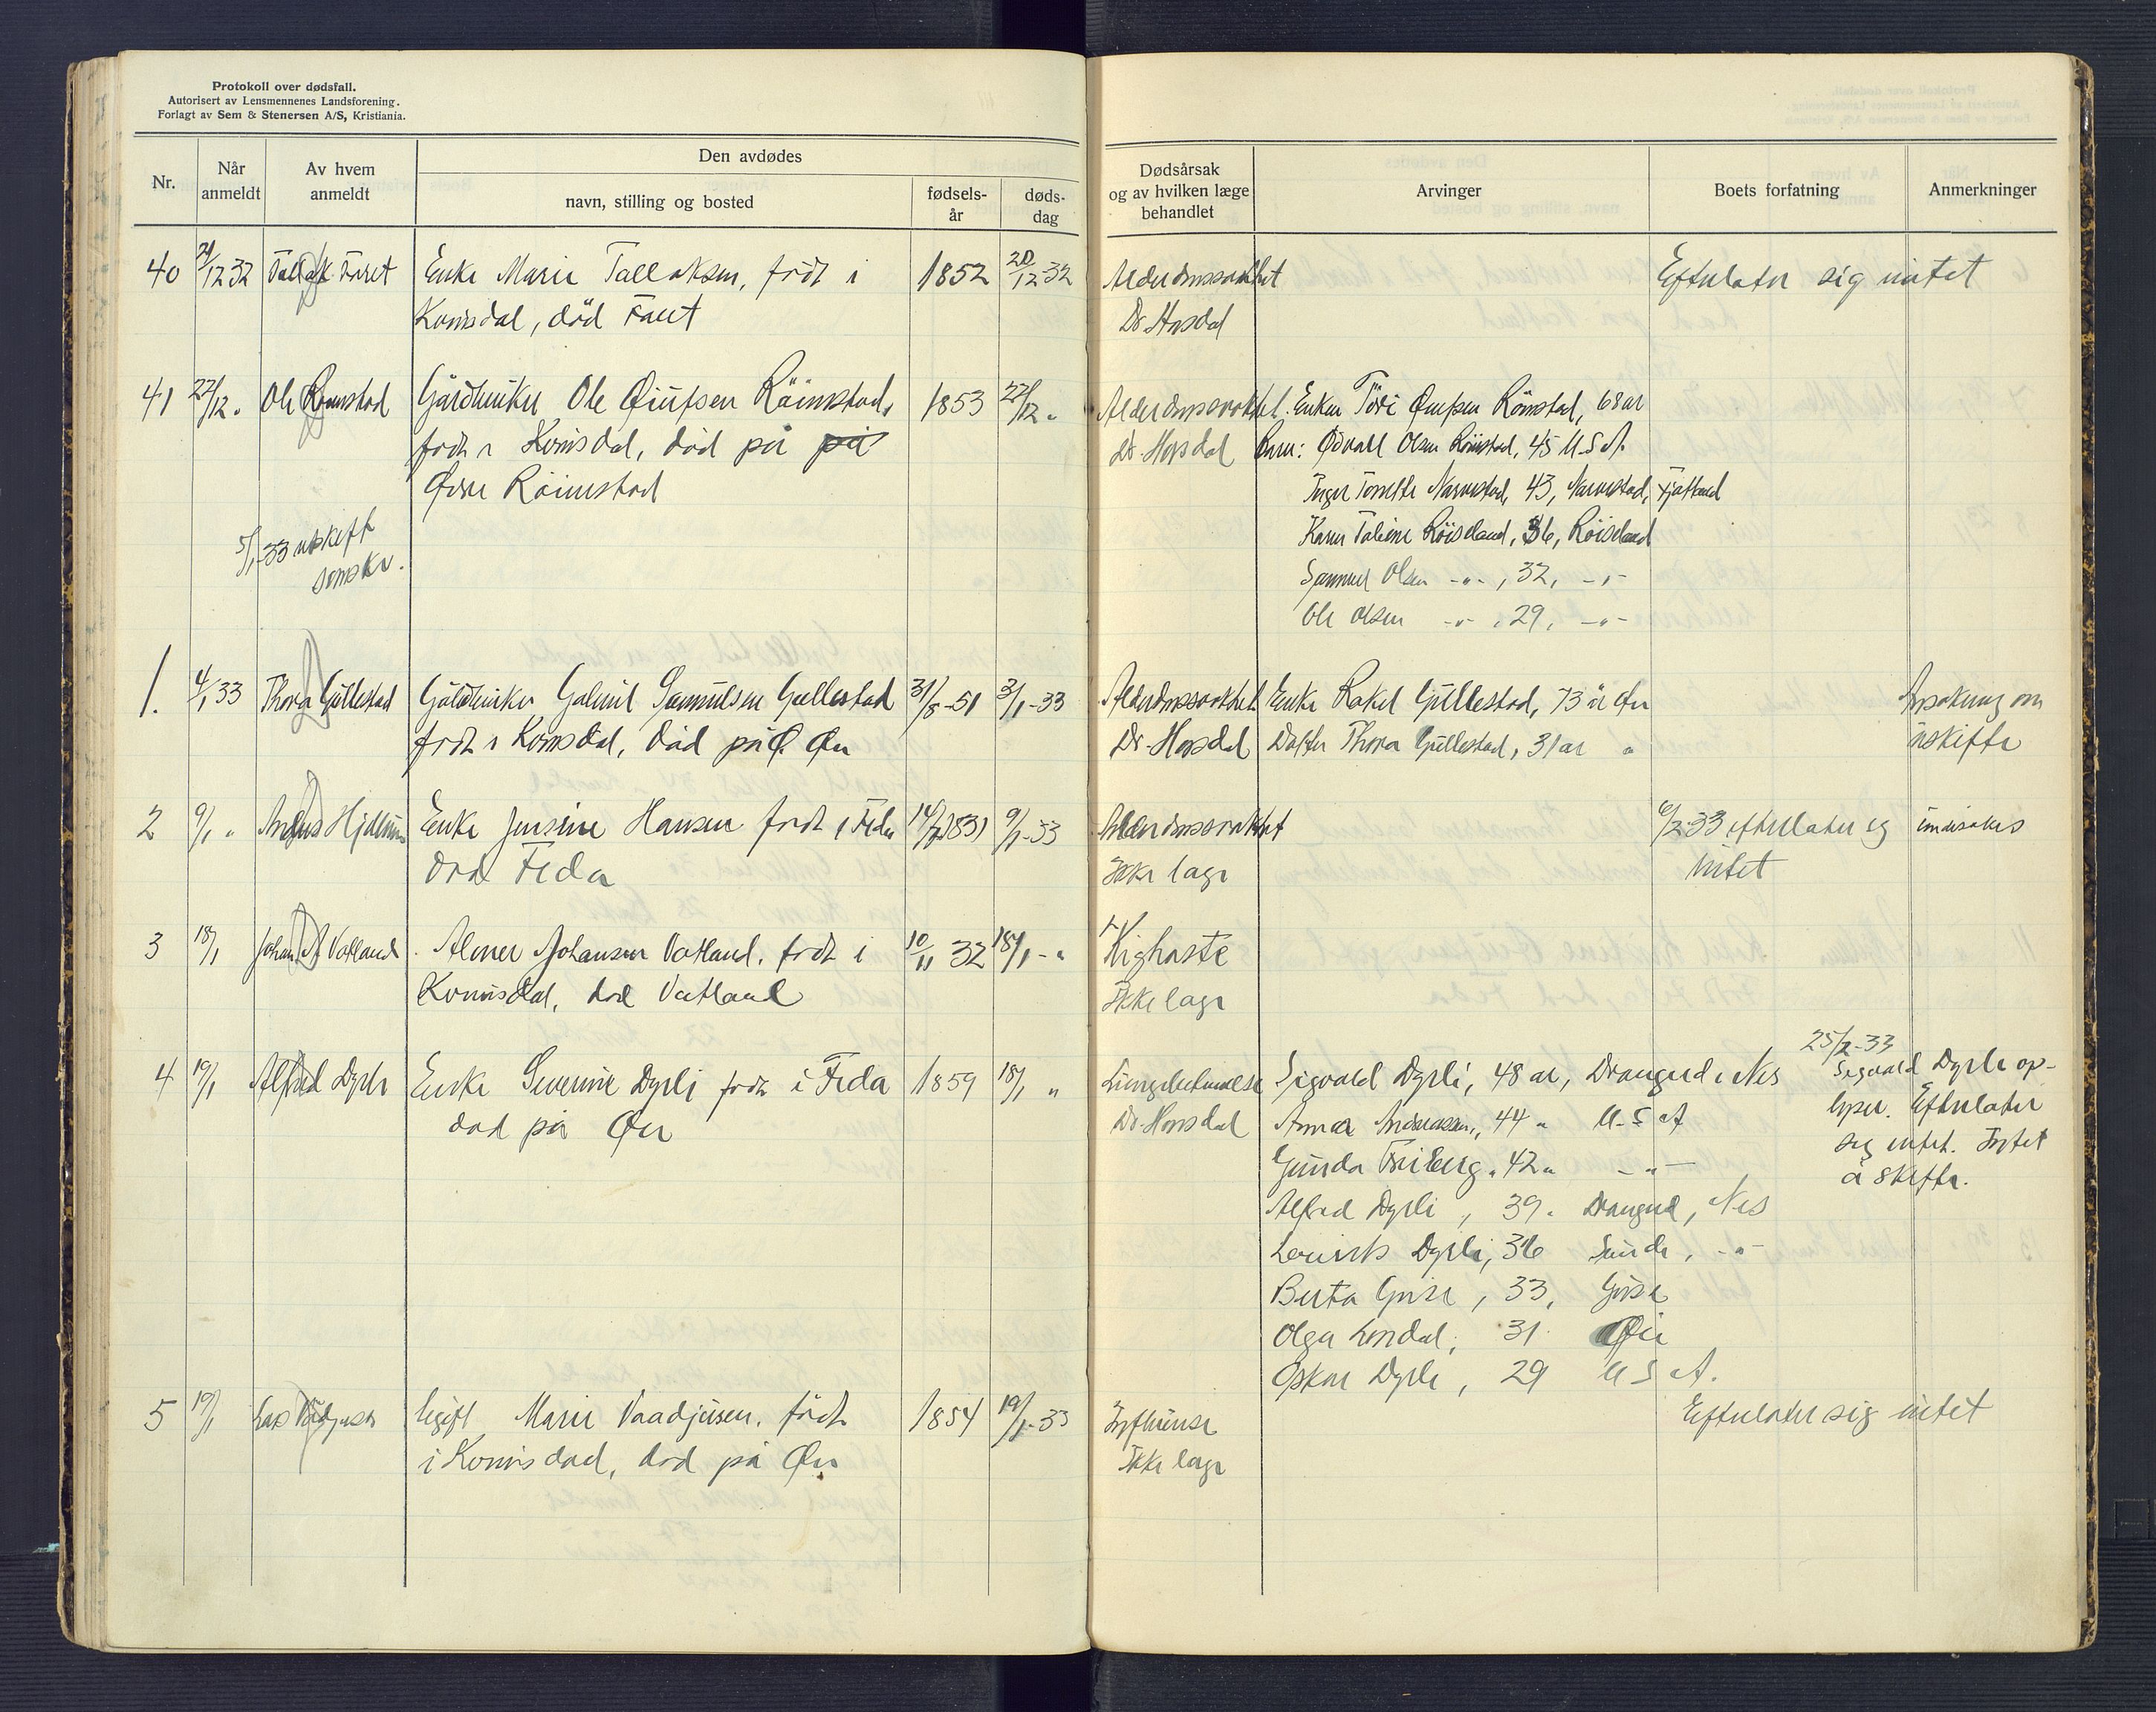 Protokoll over dødsfall.
Autorisert av Lensmennenes Landsforening.
Forlagt av Sem & Stenersen A/S, Kristiania.
Nr.
Når anmeldt
Av hvem anmeldt
Den avdødes
navn, stilling og bosted
fødsels-år
døds-dag
Dødsårsak og av hvilken læge behandlet
Arvinger
Boets forfatning
Anmerkninger
40 21/12 32 Tallak Føret Enke Marie Tallaksen, født i 1852 20/12 32 Alderdomssvakhet Efterlater sig intet
Kvinesdal, død Føret Dr. Hosdal
41 22/12 " Ole Røimstad Gårdbruker Ole Røimstad, 1853 22/12 " Alderdomssvakhet. Enken Røimstad, 68 år
født i Kvinesdal, død på på Dr. Hosdal Barn: Olsen Røimstad, 45 U.S.A.
Øvre Røimstad Inger 43, Fjotland
5/1 33 uskifte Karen Røisland, 36, Røisland
Samuel Olsen -"-, 32, -"-
Ole Olsen -"-, 29, -"-
1. 4/1 33 Thora Gullestad Gårdbruker Gabriel Samuelsen Gullestad 31/8-51 3/1-33 Alderdomssvakhet Enke Rakel Gullestad, 73 år Øie Ansøkning om
født i Kvinesdal, død på Ø. Øie Dr. Hosdal Datter Thora Gullestad, 31 år " uskifte
2 9/1 " Enke Jensine Hansen født i Feda 14/7 1831 9/1-33 Alderdomssvakhet 6/2-33 efterlater sig undersøkes
død Feda Ikke læge intet
3 18/1 Johan A Vatland Abner Johansen Vatland, født i 10/11 32 18/1 - " Kighoste
Kvinesdal, død Vatland Ikke læge
4 19/1 Alfred Dyrli Enke Severine Dyrli født i Feda 1859 18/1 " Lungebetennelse Sigvald Dyrli, 48 år, Drangeid i Nes 25/2-33 Sigvald Dyrli op-
død på Øie Dr. Hosdal Anna Andreassen, 44 " U.S.A lyser. Efterlater
Gunda Friberg, 42 " -"- sig intet. Intet
Alfred Dyrli, 39 " Drangeid, Nes å skifte.
Louis Dyrli, 36 Sunde, -"-
Berta Gyse, 33, Gyse
Olga Lendal, 31 Øie
Oskar Dyrli, 29 U S A.
5 19/1 Lars Vaadjesen Gift Marie Vaadjesen, født 1854 19/1-33 Influensa Efterlater sig intet
i Kvinesdal, død på Øie Ikke læge